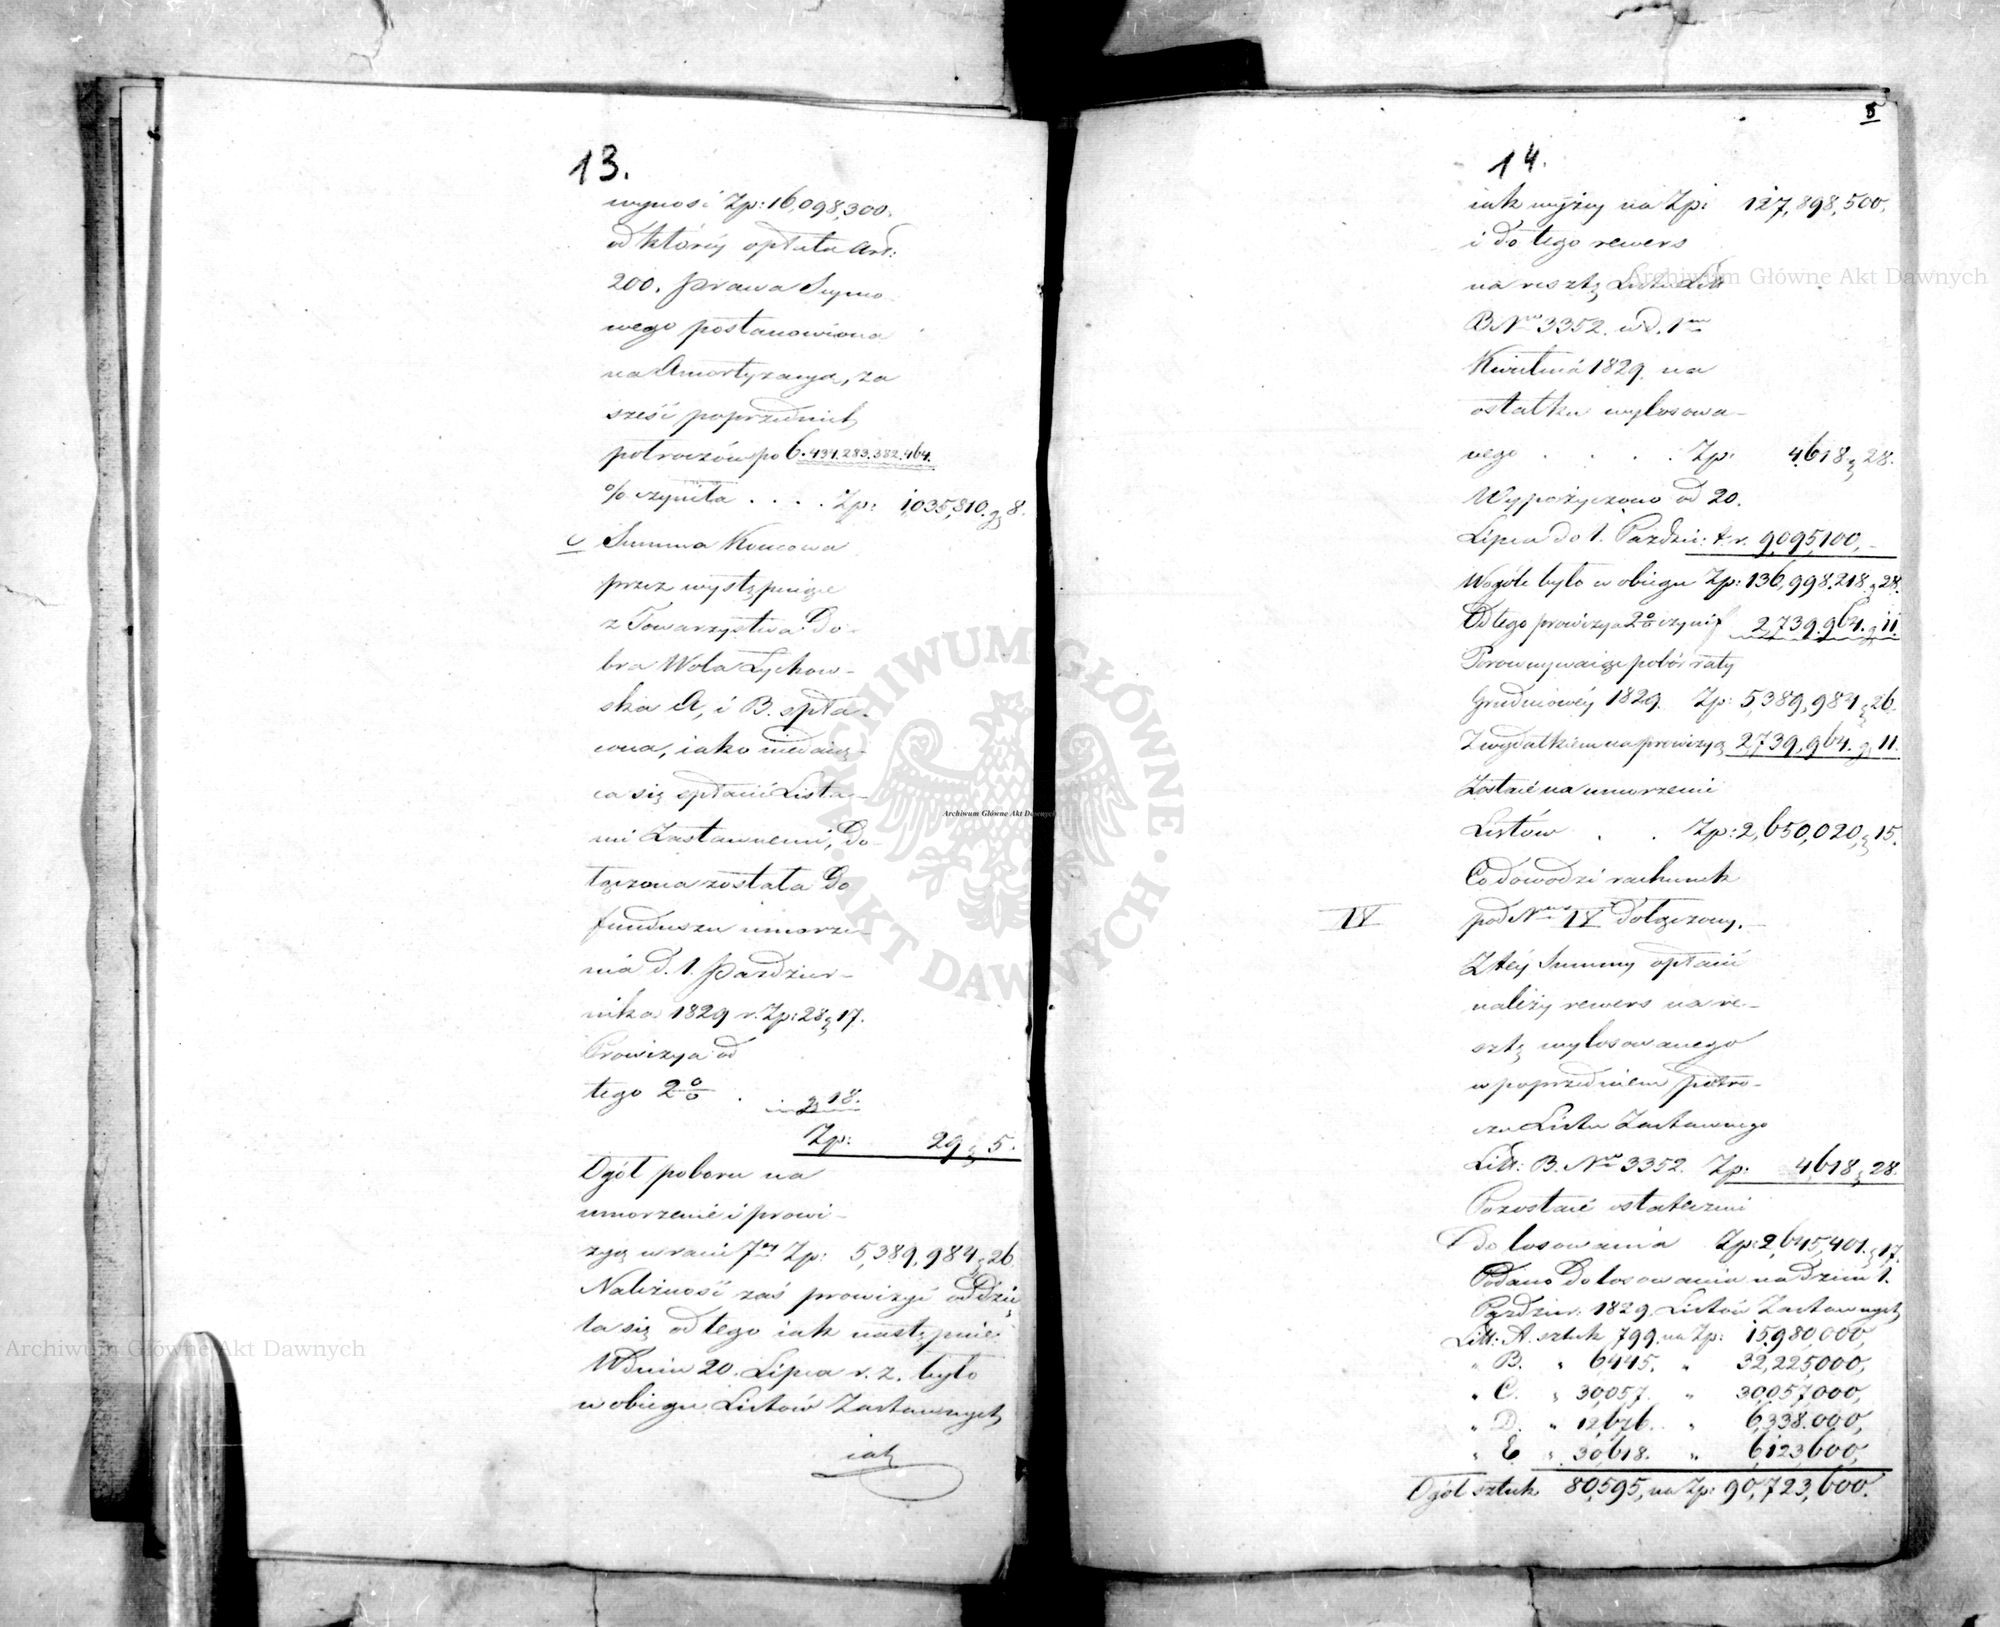 13.
wynosi Zp: 16,098,300.
od któréy opłata Art:
200. prawa Seymo-
wego postanowiona
na Amortyzacyą, za
sześć poprzednich
półroczów po 6.434.283.382.464.
% czyniła . . . . Zp: 1,035,810. g 8.
c Summa Końcowa
przez występuiące
z Towarzystwa Do-
bra Wola Łychow-
ska A, i B. spła-
cona, iako niedaią-
ca się spłacić Lista-
mi Zastawnemi, do-
łączona została do
funduszu umorze-
nia d. 1. Paździer-
nika 1829 r. Zp: 28 g 17.
Prowizya od
tego 2 % . g 18.
Zp: 29 g 5.
Ogół poboru na
umorzenie i prowi-
zyą w racie 7éy Zp: 5,389,984 g 26
Należność zaś prowizyi oddzie
la się od tego iak następnie
W dniu 20. Lipca r. z. było
w obiegu Listów Zastawnych
iak
5
14.
iak wyżey na Zp: 127,898,500,
i do tego rewers
na resztę Listu Litt
B. Nro 3352. w d. 1m
Kwietnia 1829 na
ostatku wylosowa-
nego . . . . Zp: 4,618 g 28.
Wypożyczono od 20.
Lipca do 1. Paździer: t. r. 9,095,100,-
Wogóle było w obiegu Zp: 136,998,218 g 28.
Od tego prowizya 2% czyni 2,739,964. g 11.
Porównywaiąc pobór raty
Grudniowéy 1829. Zp: 5,389,984 g 26.
Z wydatkiem na prowizyą 2,739,964. g 11.
Zostaie na umorzenie
Listów . . Zp: 2,650,020, g 15.
Co dowodzi rachunek
IV pod Nrem IV dołączony.-
Z téy Summy opłacić
należy rewers na re-
sztę wylosowanego
w poprzedniem półro-
czu Listu Zastawnego
Litt: B. Nro 3352. Zp: 4,618 g 28.
Pozostaie ostatecznie
do losowania Zp: 2,645,401. g 17.
Podano do losowania na dzień 1.
Paździer. 1829. Listów Zastawnych
Litt: A. sztuk 799. na Zp: 15,980,000,
" B. " 6,445. " 32,225,000,
" C. " 30,057. " 30,057,000,
" D. " 12,676. " 6,338,000,
" E " 30,618. " 6,123,600,
Ogół sztuk 80,595, na Zp: 90,723,600.
Archiwum Główne Akt Dawnych
Archiwum Główne Akt Dawnych
Archiwum Główne Akt Dawnych
ARCHIWUM GŁÓWNE · AKT DAWNYCH ·